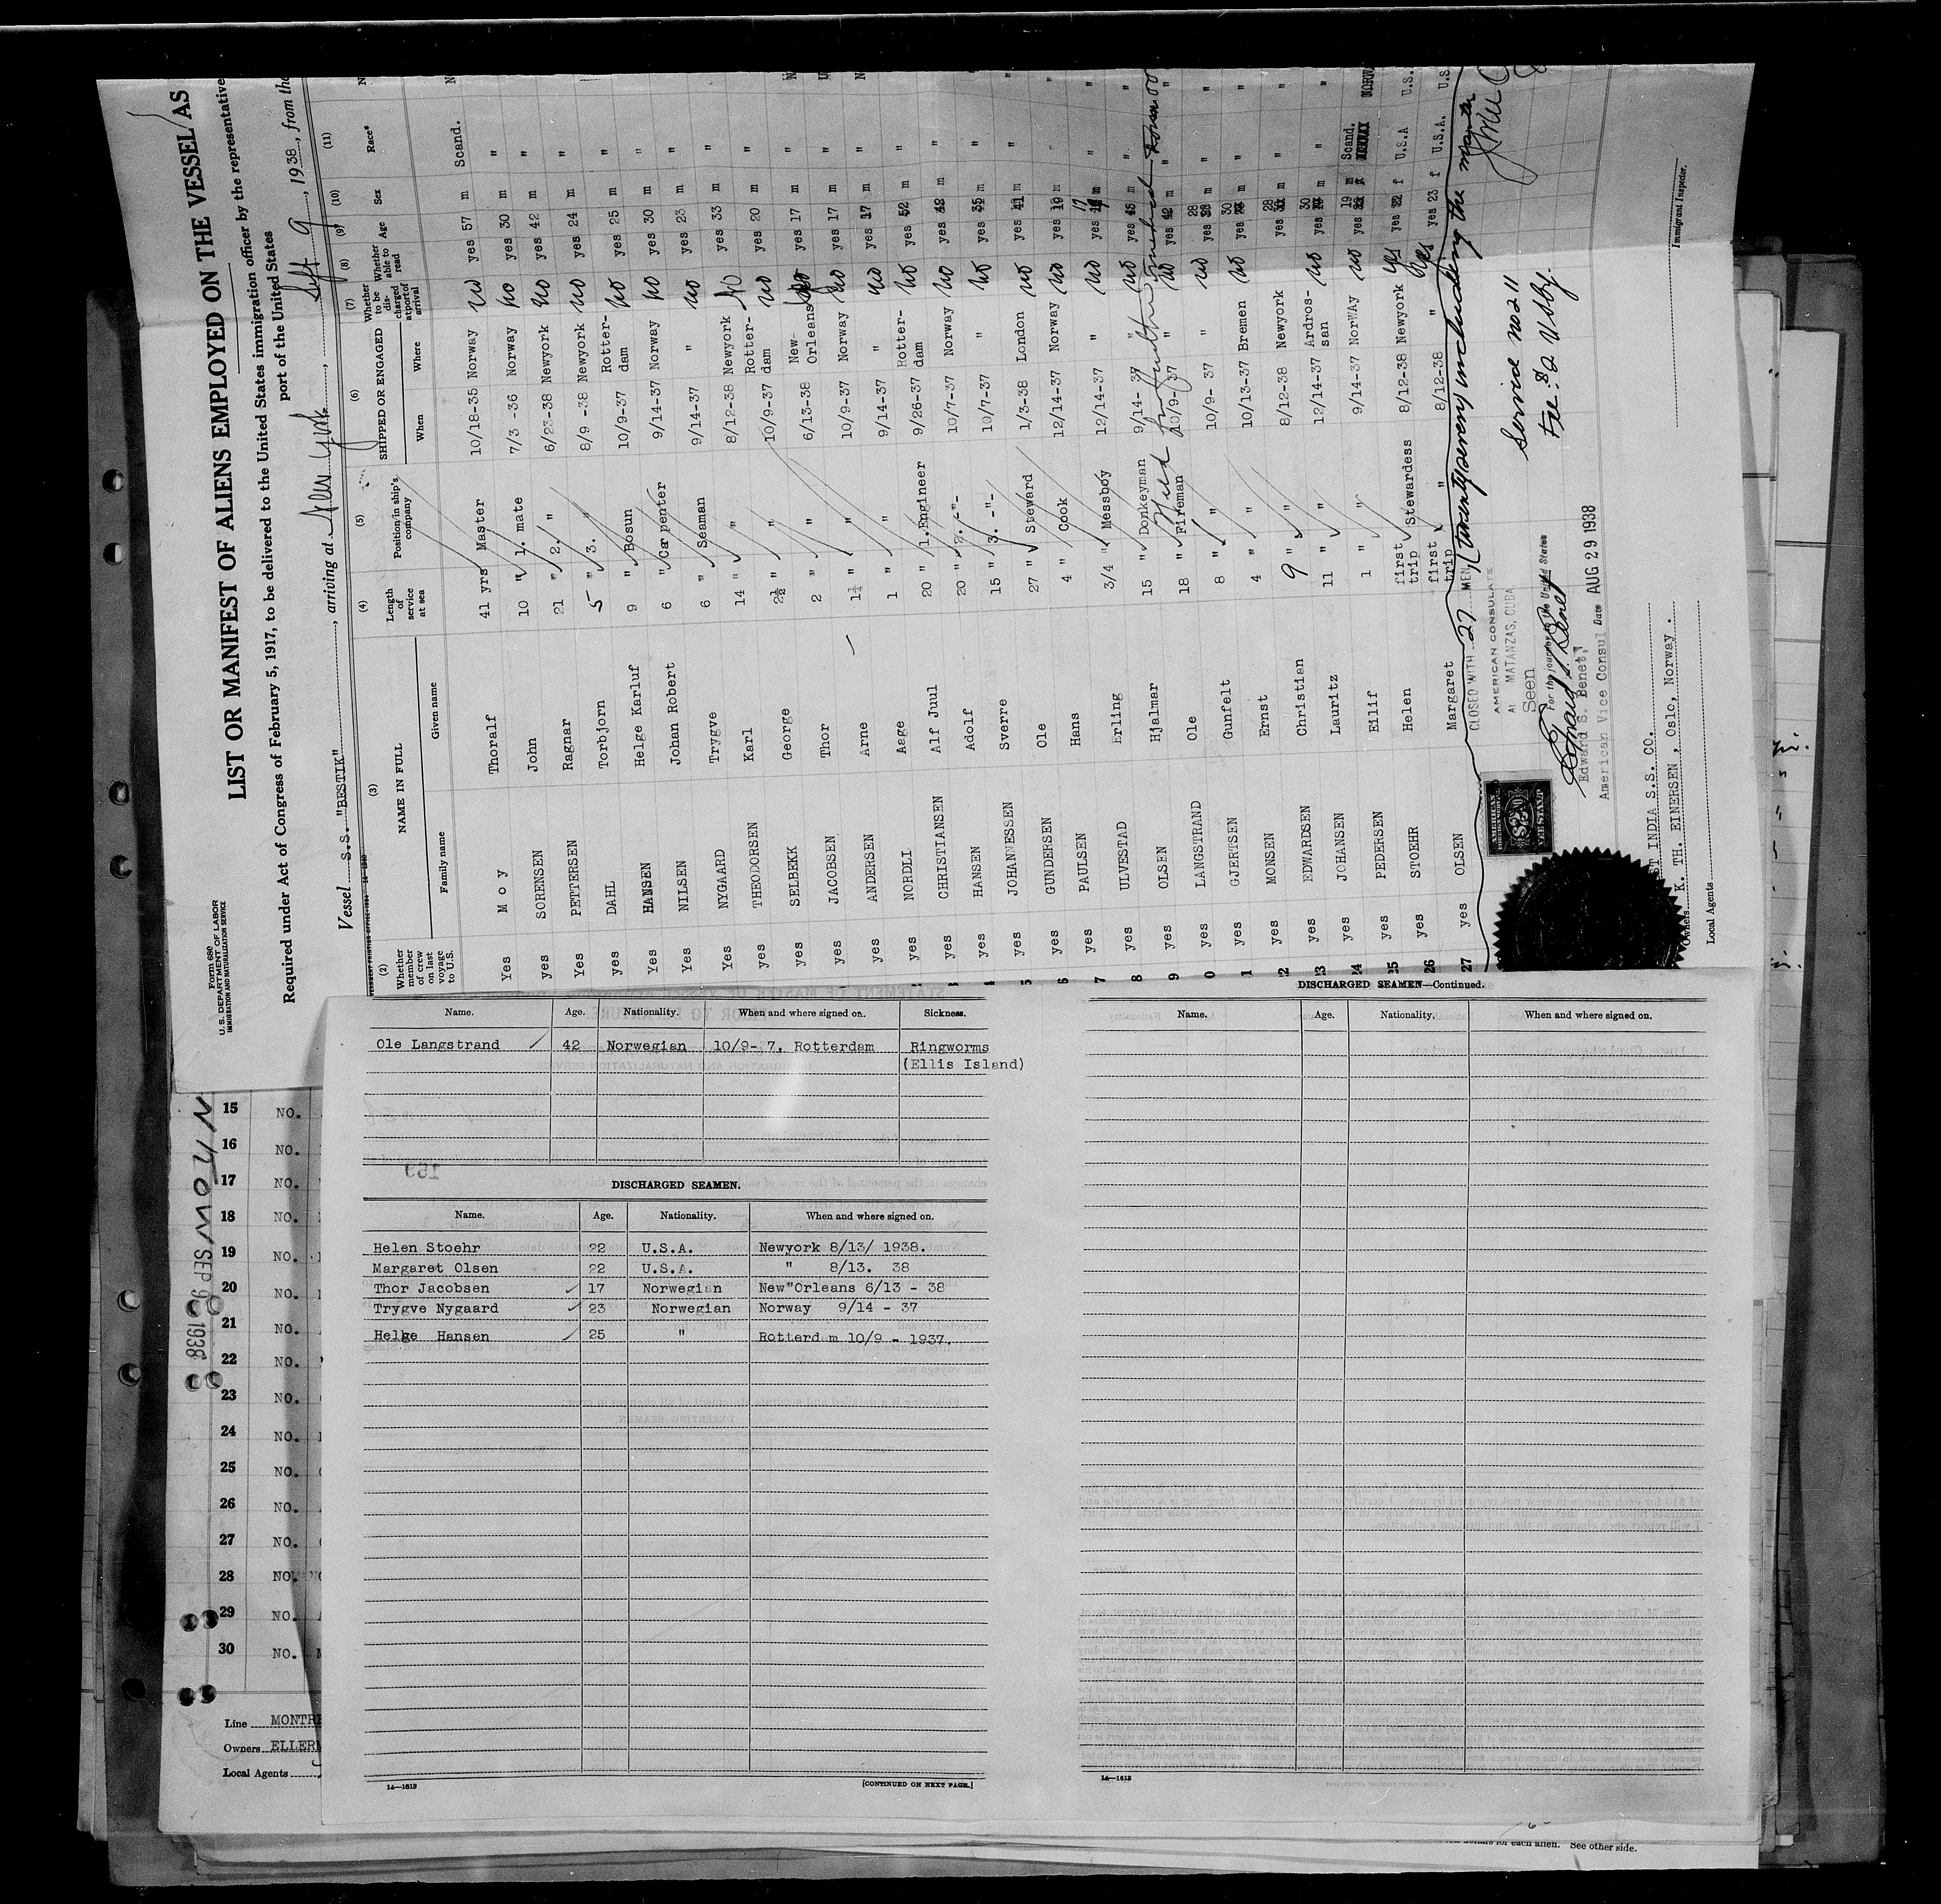 Form 680
U. S. DEPARTMENT OF LABOR
IMMIGRATION AND NATURALIZATION SERVICE
LIST OR MANIFEST OF ALIENS EMPLOYED ON THE VESSEL AS
Required under Act of Congress of February 5, 1917, to be delivered to the United States immigration officer by the representative
port of the United States
Vessel S.S. "BESTIK" , arriving at New York , Sept 9 , 1938, from the
(2) (3) (4) (5) (6) (7) (8) (9) (10) (11)
Whether member of crew on last voyage to U.S. NAME IN FULL Length of service at sea Position in ship's company SHIPPED OR ENGAGED Whether to be discharged at port of arrival Whether able to read Age Sex Race*
Family name Given name When Where
Yes Moy Thoralf 41 yrs Master 10/18-35 Norway no yes 57 m Scand.
yes SORENSEN John 10 " 1. mate 7/3 -36 Norway no yes 30 m "
Yes PETTERSEN Ragnar 21 " 2. " 6/23-38 Newyork no yes 42 m "
yes DAHL Torbjorn 5 " 3. " 8/9 -38 Newyork no yes 24 m "
Yes HANSEN Helge Karluf 9 " Bosun 10/9-37 Rotter-dam no yes 25 m "
Yes NILSEN Johan Robert 6 " Carpenter 9/14-37 Norway no yes 30 m "
Yes NYGAARD Trygve 6 " Seaman 9/14-37 " no yes 23 m "
yes THEODORSEN Karl 14 " " 8/12-38 Newyork no yes 33 m "
yes SELBEKK George 2½ " " 10/9-37 Rotter-dam no yes 20 m "
yes JACOBSEN Thor 2 " " 6/13-38 New-Orleans yes 17 m "
yes ANDERSEN Arne 1¼ " " 10/9-37 Norway no yes 17 m "
yes NORDLI Aage 1 " " 9/14-37 " no yes 17 m "
yes CHRISTIANSEN Alf Juul 20 " 1.Engineer 9/26-37 Rotter-dam no yes 52 m "
yes HANSEN Adolf 20 " 2. -"- 10/7-37 Norway no yes 42 m "
yes JOHANNESSEN Sverre 15 " 3. -"- 10/7-37 " no yes 35 m "
yes GUNDERSEN Ole 27 " Steward 1/3-38 London no yes 41 m "
yes PAULSEN Hans 4 " Cook 12/14-37 Norway no yes 19 m "
yes ULVESTAD Erling 3/4 " Messboy 12/14-37 " no yes 17 m "
yes OLSEN Hjalmar 15 " Donkeyman 9/14- 37 " no yes 45 m "
yes LANGSTRAND Ole 18 " Fireman 10/9-37 " no yes 42 m "
yes GJERTSEN Gunfelt 8 " " 10/9- 37 " no yes 28 m "
yes MONSEN Ernst 4 " " 10/13-37 Bremen no yes 30 m "
yes EDWARDSEN Christian 9 " " 8/12-38 Newyork yes 28 m "
yes JOHANSEN Lauritz 11 " " 12/14-37 Ardros-san no yes 30 m "
yes PEDERSEN Eilif 1 " " 9/14-37 NorWAy no yes 19 m Scand.
yes STOEHR Helen first trip Stewardess 8/12-38 Newyork yes yes 22 f U.S.A U.S.
27 yes OLSEN Margaret first trip " 8/12-38 " yes yes 23 f U.S.A. U.S.
CLOSED WITH 27 MEN (twenty seven) including the master
AMERICAN CONSULATE
AT MATANZAS, CUBA
Seen
For the journey to the United States
Edward S. Benet
Edward S. Benet,
American Vice Consul Date AUG 29 1938
Service no 211
Immigrant Inspector.
Owners
ST INDIA S.S. CO.
K. TH. EINERSEN , Oslo, Norway .
Local Agents
Name. Age. Nationality. When and where signed on. Sickness.
Ole Langstrand 42 Norwegian 10/9- 7, Rotterdam Ringworms
(Ellis Island)
DISCHARGED SEAMEN.
Name. Age. Nationality. When and where signed on.
Helen Stoehr 22 U.S.A. Newyork 8/13/ 1938.
Margaret Olsen 22 U.S.A. " 8/13. 38
Thor Jacobsen 17 Norwegian New"Orleans 6/13 - 38
Trygve Nygaard 23 Norwegian Norway 9/14 - 37
Helge Hansen 25 " Rotterdam 10/9 - 1937.
14—1613
[CONTINUED ON NEXT PAGE.]
DISCHARGED SEAMEN—Continued.
Name. Age. Nationality. When and where signed on.
14—1613
15 NO.
16 NO.
17 NO.
18 NO.
19 NO.
20 NO.
21 NO.
22 NO.
23 NO.
24 NO.
25 NO.
26 NO.
27 NO.
28 NO.
29 NO.
30 NO.
SEP 9 1938
Line MONTR
Owners ELLER
Local Agents
for each alien. See other side.